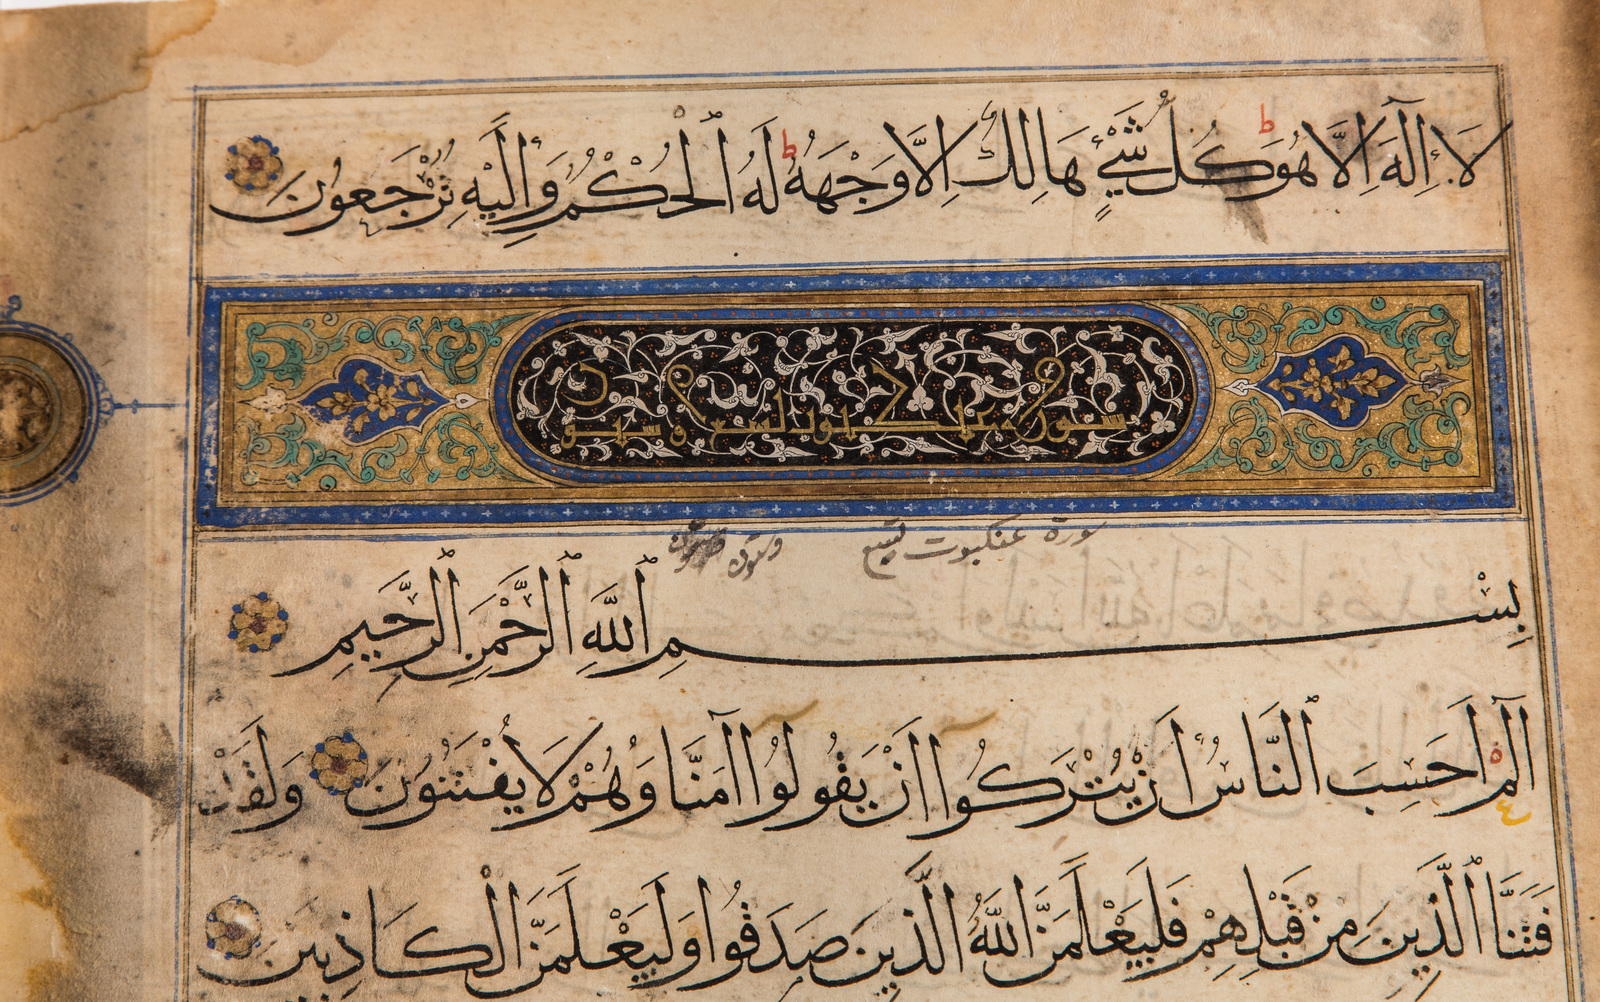 لَا إِلَٰهَ إِلَّا هُوَ كُلُّ شَيْءٍ هَالِكٌ إِلَّا وَجْهَهُ لَهُ ٱلْحُكْمُ وَإِلَيْهِ تُرْجَعُونَ
سورة العنكبوت تسع وستون
سورة عنكبوت تسع وستون
بِسْمِ ٱللَّهِ ٱلرَّحْمَٰنِ ٱلرَّحِيمِ
الٓمٓ أَحَسِبَ ٱلنَّاسُ أَنْ يُتْرَكُوا أَنْ يَقُولُوا آمَنَّا وَهُمْ لَا يُفْتَنُونَ وَلَقَدْ
فَتَنَّا ٱلَّذِينَ مِنْ قَبْلِهِمْ فَلَيَعْلَمَنَّ ٱللَّهُ ٱلَّذِينَ صَدَقُوا وَلَيَعْلَمَنَّ ٱلْكَاذِبِينَ